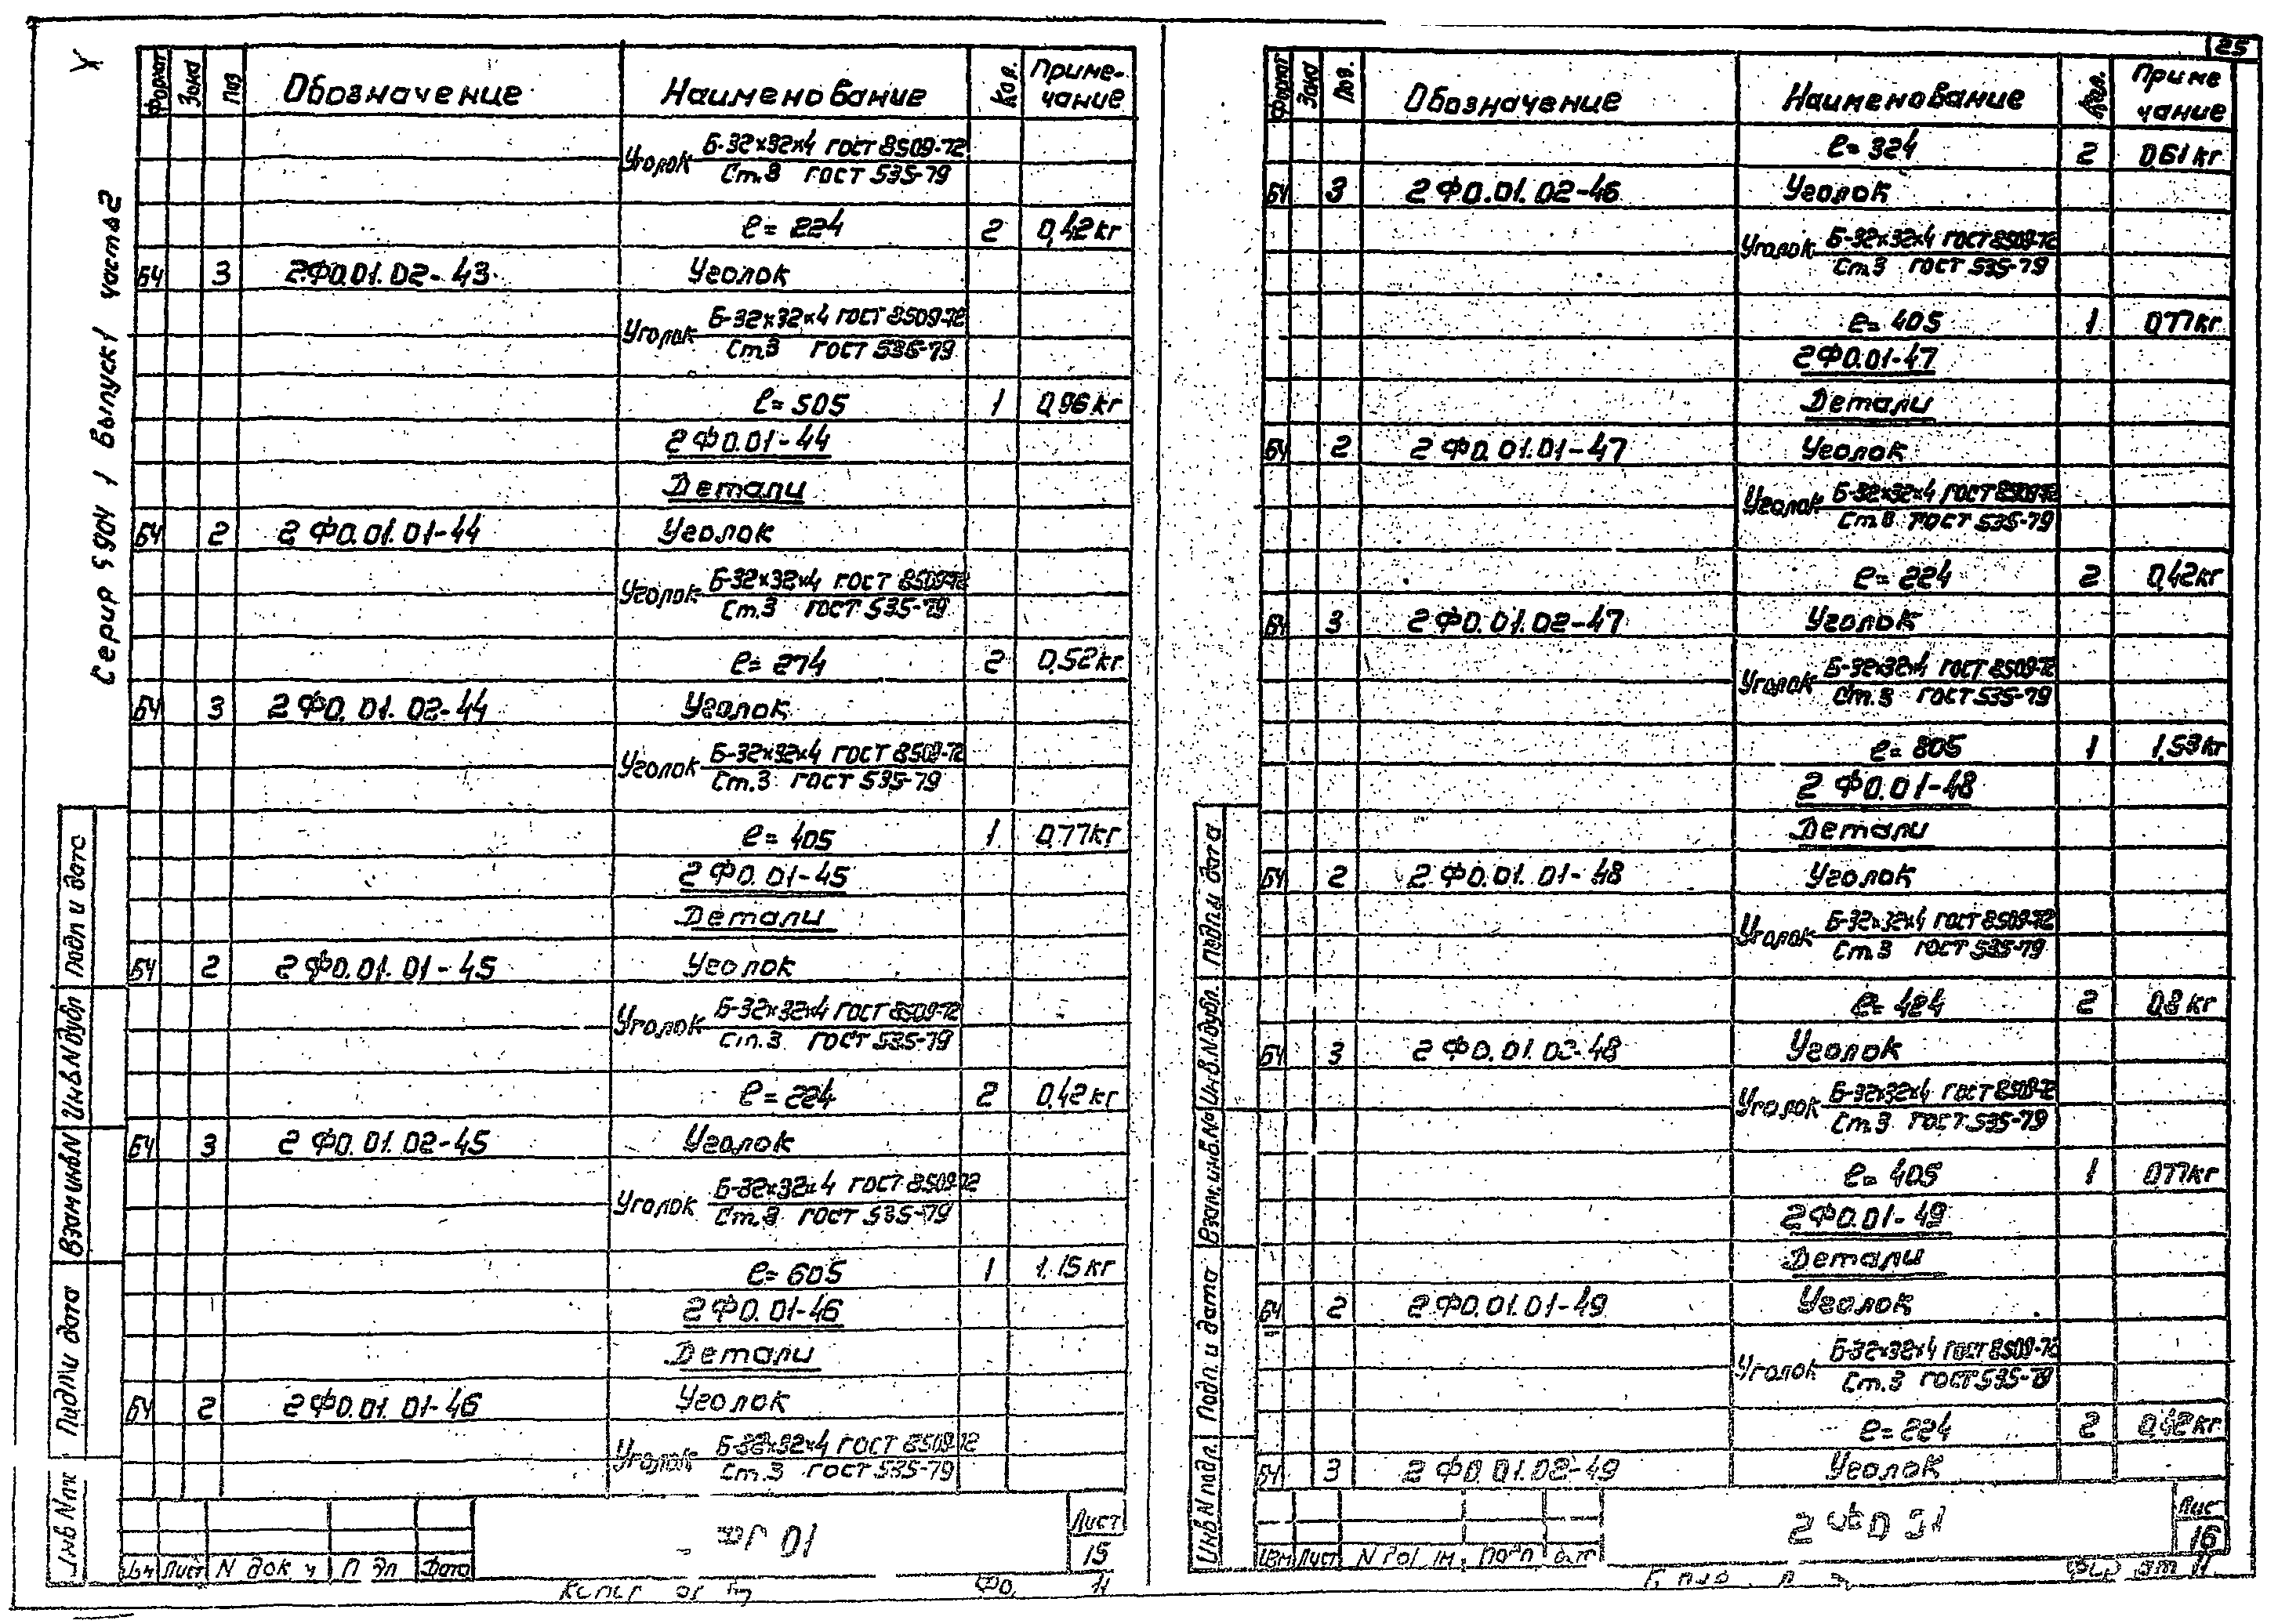 Серия 5904 1 Выпуск 1 часть 2
Формат Зона Поз Обозначение Наименование Кол. Приме-чание
Уголок Б-32×32×4 ГОСТ 8509-72
Ст.3 ГОСТ 535-79
ℓ= 224 2 0,42 кг
БЧ 3 2Ф0.01.02-43 Уголок
Уголок Б-32×32×4 ГОСТ 8509-72
Ст.3 ГОСТ 535-79
ℓ= 505 1 0,96 кг
2Ф0.01-44
Детали
БЧ 2 2Ф0.01.01-44 Уголок
Уголок Б-32×32×4 ГОСТ 8509-72
Ст.3 ГОСТ 535-79
ℓ= 274 2 0,52 кг
БЧ 3 2Ф0.01.02-44 Уголок
Уголок Б-32×32×4 ГОСТ 8509-72
Ст.3 ГОСТ 535-79
ℓ= 405 1 0,77 кг
2Ф0.01-45
Детали
БЧ 2 2Ф0.01.01-45 Уголок
Уголок Б-32×32×4 ГОСТ 8509-72
Ст.3 ГОСТ 535-79
ℓ= 224 2 0,42 кг
БЧ 3 2Ф0.01.02-45 Уголок
Уголок Б-32×32×4 ГОСТ 8509-72
Ст.3 ГОСТ 535-79
ℓ= 605 1 1.15 кг
2Ф0.01-46
Детали
БЧ 2 2Ф0.01.01-46 Уголок
Уголок Б-32×32×4 ГОСТ 8509-72
Ст.3 ГОСТ 535-79
Подп и дата
Инв.N дубл
Взам инв.N
Подп и дата
Инв N
01
Лист
15
Изм Лист N док Дата
11
25
Формат Зона Поз. Обозначение Наименование Кол. Приме чание
ℓ= 324 2 0,61 кг
БЧ 3 2Ф0.01.02-46 Уголок
Уголок Б-32×32×4 ГОСТ 8509-72
Ст.3 ГОСТ 535-79
ℓ= 405 1 0,77 кг
2Ф0.01-47
Детали
БЧ 2 2Ф0.01.01-47 Уголок
Уголок Б-32×32×4 ГОСТ 8509-72
Ст.3 ГОСТ 535-79
ℓ= 224 2 0,42 кг
БЧ 3 2Ф0.01.02-47 Уголок
Уголок Б-32×32×4 ГОСТ 8509-72
Ст.3 ГОСТ 535-79
ℓ= 805 1 1,53 кг
2Ф0.01-48
Детали
БЧ 2 2Ф0.01.01-48 Уголок
Уголок Б-32×32×4 ГОСТ 8509-72
Ст.3 ГОСТ 535-79
ℓ= 424 2 0,8 кг
БЧ 3 2Ф0.01.02-48 Уголок
Уголок Б-32×32×4 ГОСТ 8509-72
Ст.3 ГОСТ 535-79
ℓ= 405 1 0,77 кг
2Ф0.01-49
Детали
БЧ 2 2Ф0.01.01-49 Уголок
Уголок Б-32×32×4 ГОСТ 8509-72
Ст.3 ГОСТ 535-79
ℓ= 224 2 0,42 кг
БЧ 3 2Ф0.01.02-49 Уголок
Подпы дата
Инв.N дубл.
Взам.инв.№
Подп. и дата
Инв N подл.
Лис
16
Изм Лист
11